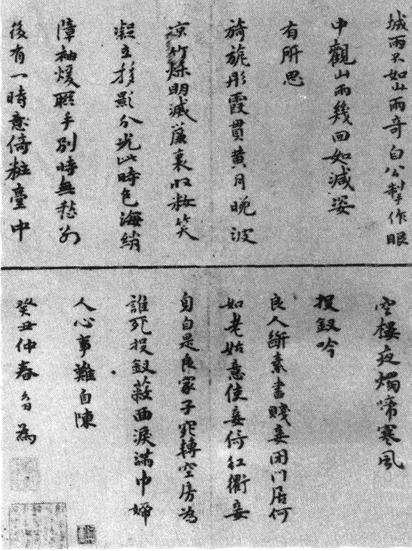 城雨不如山雨奇白公製作眼
中觀山雨幾回如減姿
有所思
旖旎彤霞貫黄月晚波
凉竹爍明滅簾裏収妝笑
凝立移影分光此時色海綃
障袖煖聯手別時無愁別
後有一時意倚粧臺中
空樓夜燭啼寒風
投釵吟
良人斷素書賤妾閉門居何
如老姑意使妾倚紅衢妾
自白是良家子宛轉空房為
誰死投釵蔽面淚滿巾婦
人心事難自陳
癸丑仲春為